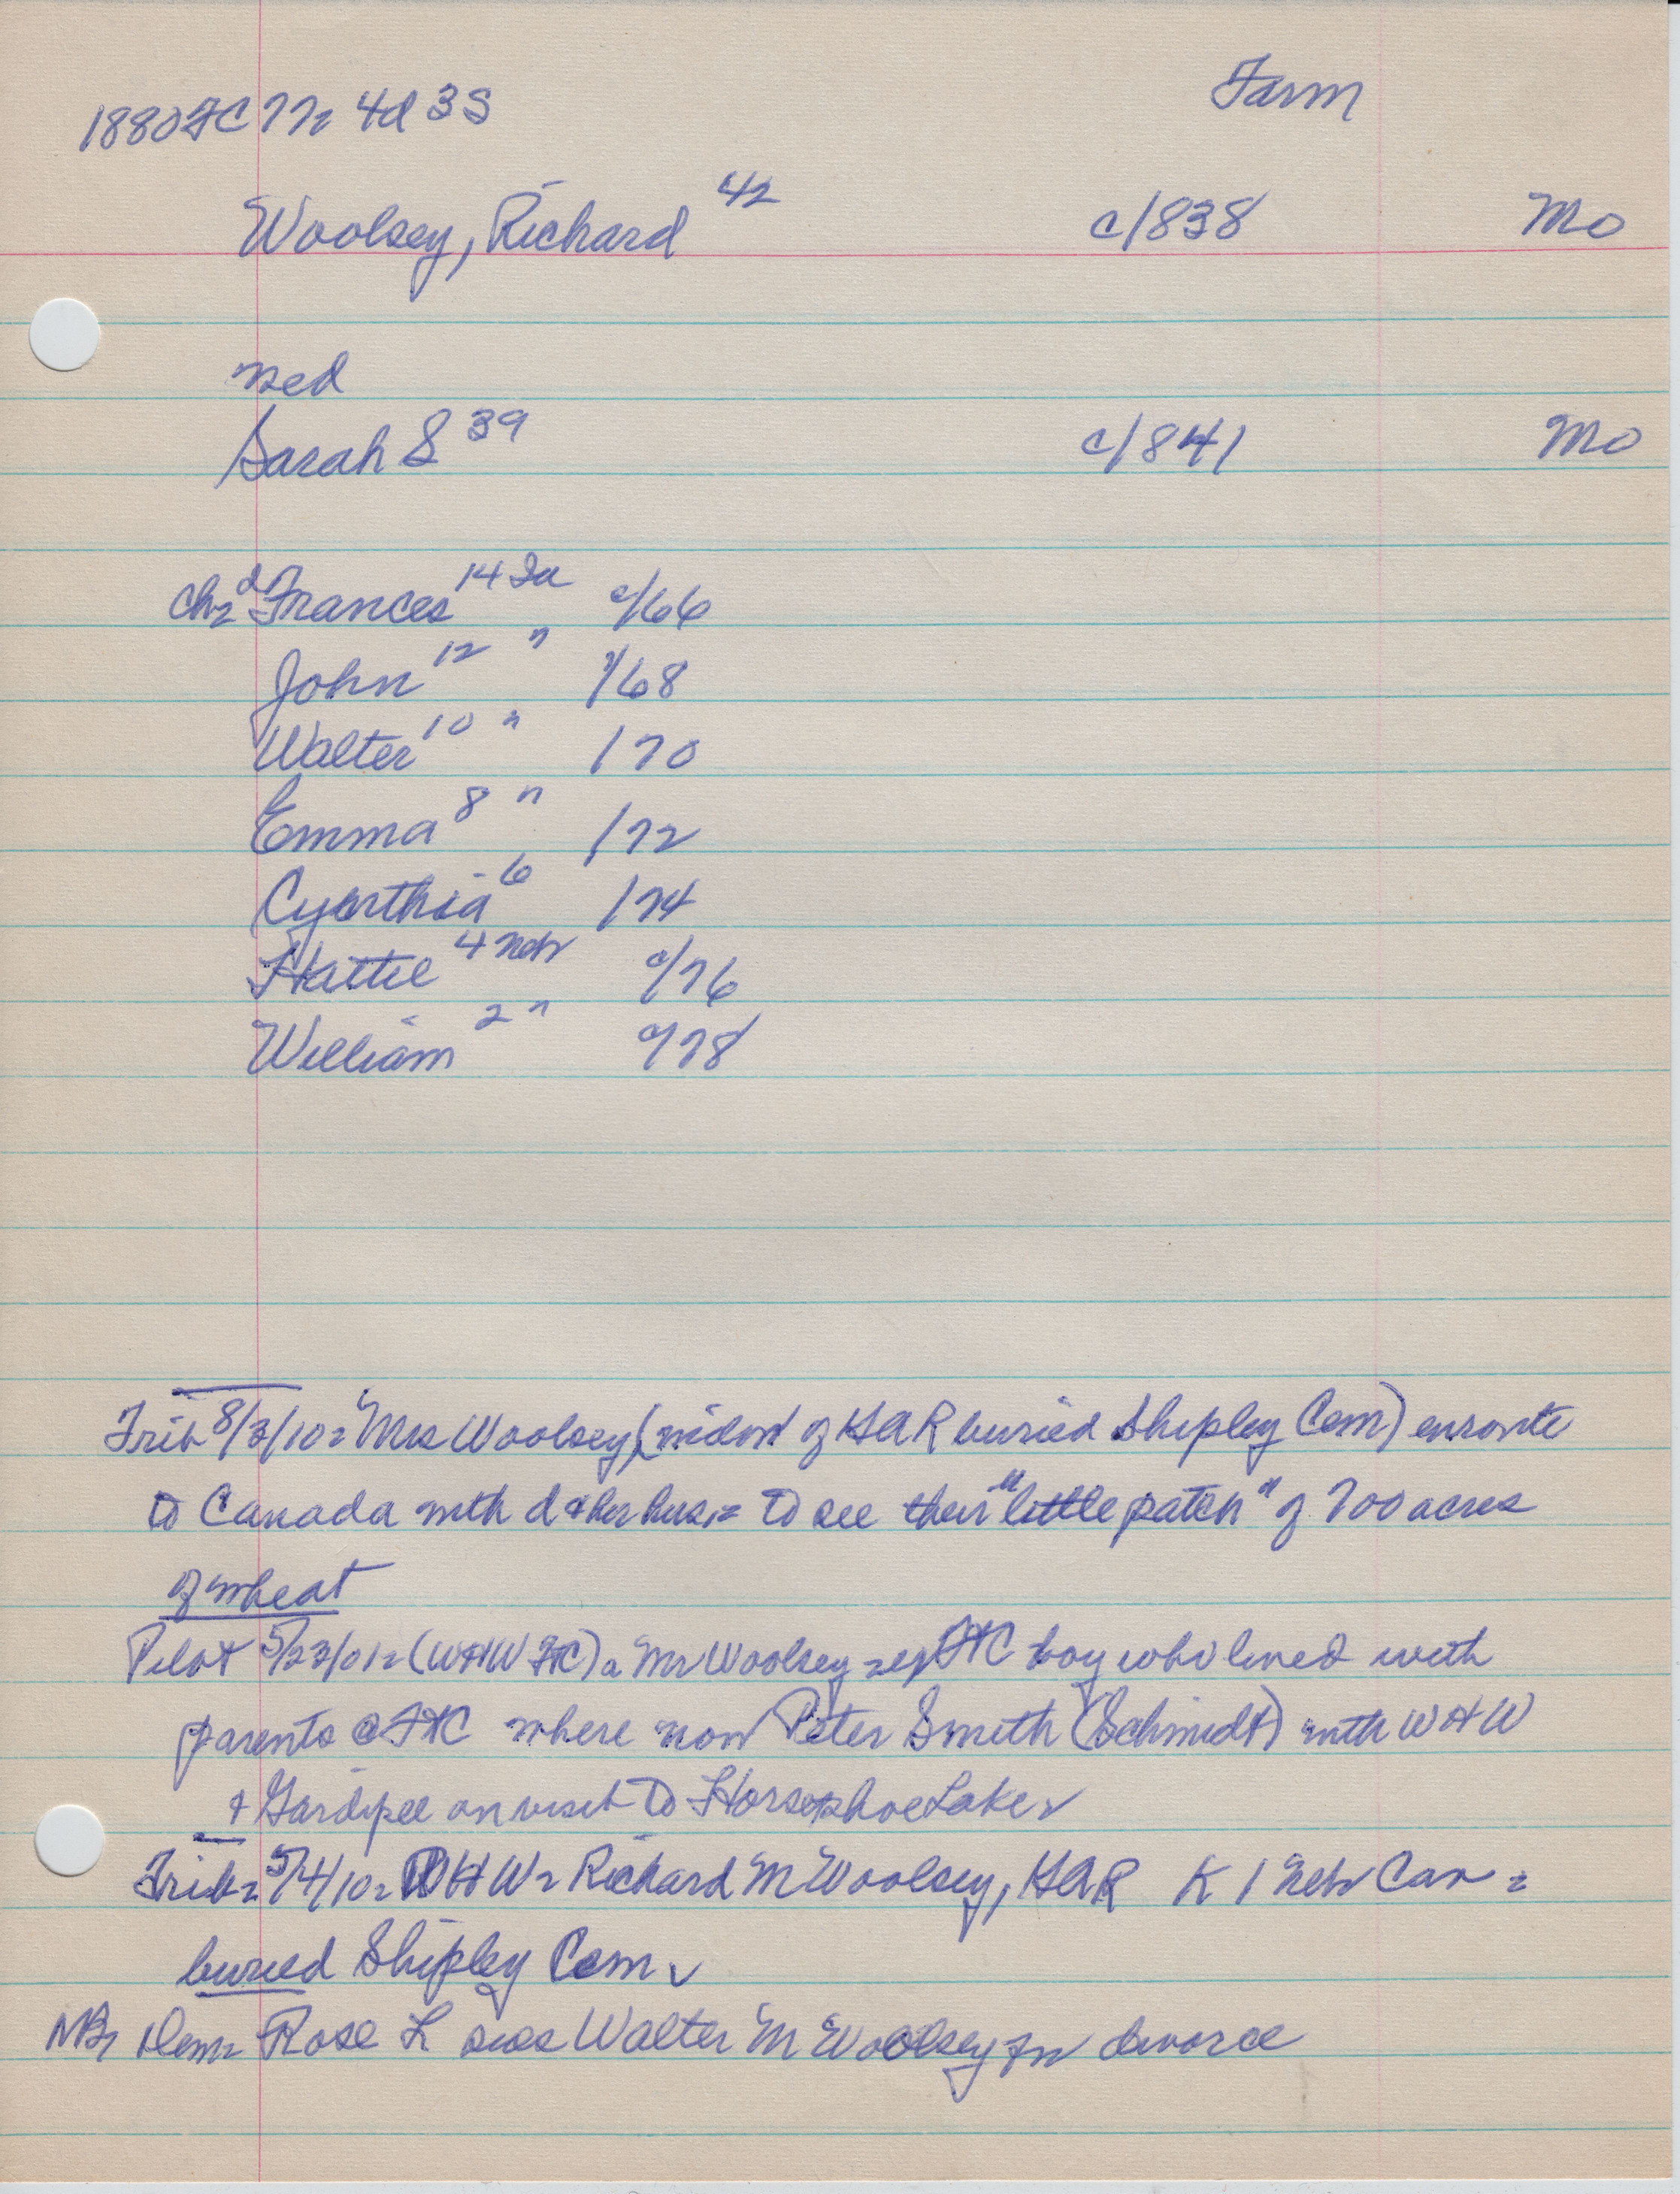 Farm
1880 FC 77= 4d 3S
Woolsey, Richard 42 c/838 Mo
med
Sarah S 39 c/841 Mo
ch= d Frances 14 Ia c/66
John 12 " /68
Walter 10 " /70
Emma 8 " /72
Cynthia 6 /74
Hattie 4 Neb c/76
William 2 " c/78
Trib 8/3/10= Mrs Woolsey, (widow of GAR buried Shipley Cem) enroute
to Canada with d & her hus. = to see their "little patch" of 700 acres
of wheat
Pilot 5/23/01= (WHW FtC) a Mr Woolsey FtC boy who lived with
parents @ FtC where now Peter Smith (Schmidt) with WHW
& Gardipee on visit to Horseshoe Lake
Trib= 5/4/10= WHW= Richard M Woolsey, GAR K 1 Neb Cav =
buried Shipley Cem.
Dem= Rose L sues Walter M Woolsey for divorce